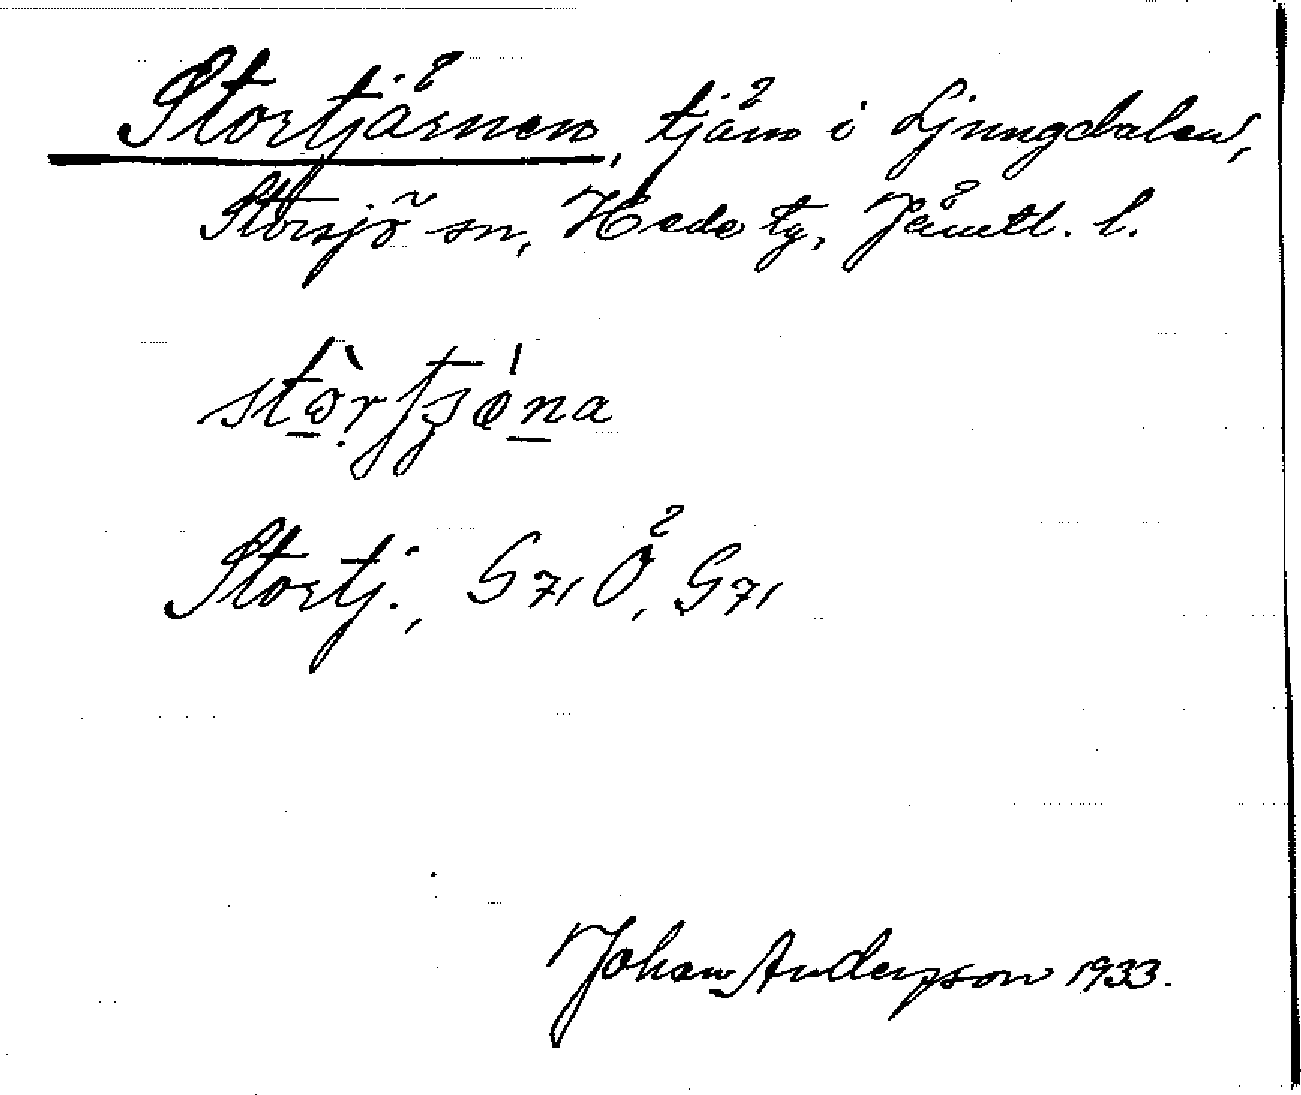 Stortjärnen, tjärn i Ljungdalen,
Storsjö sn, Hede tg, Jämtl. l.
Stortj., G71Ö, G71
Johan Andersson 1933.